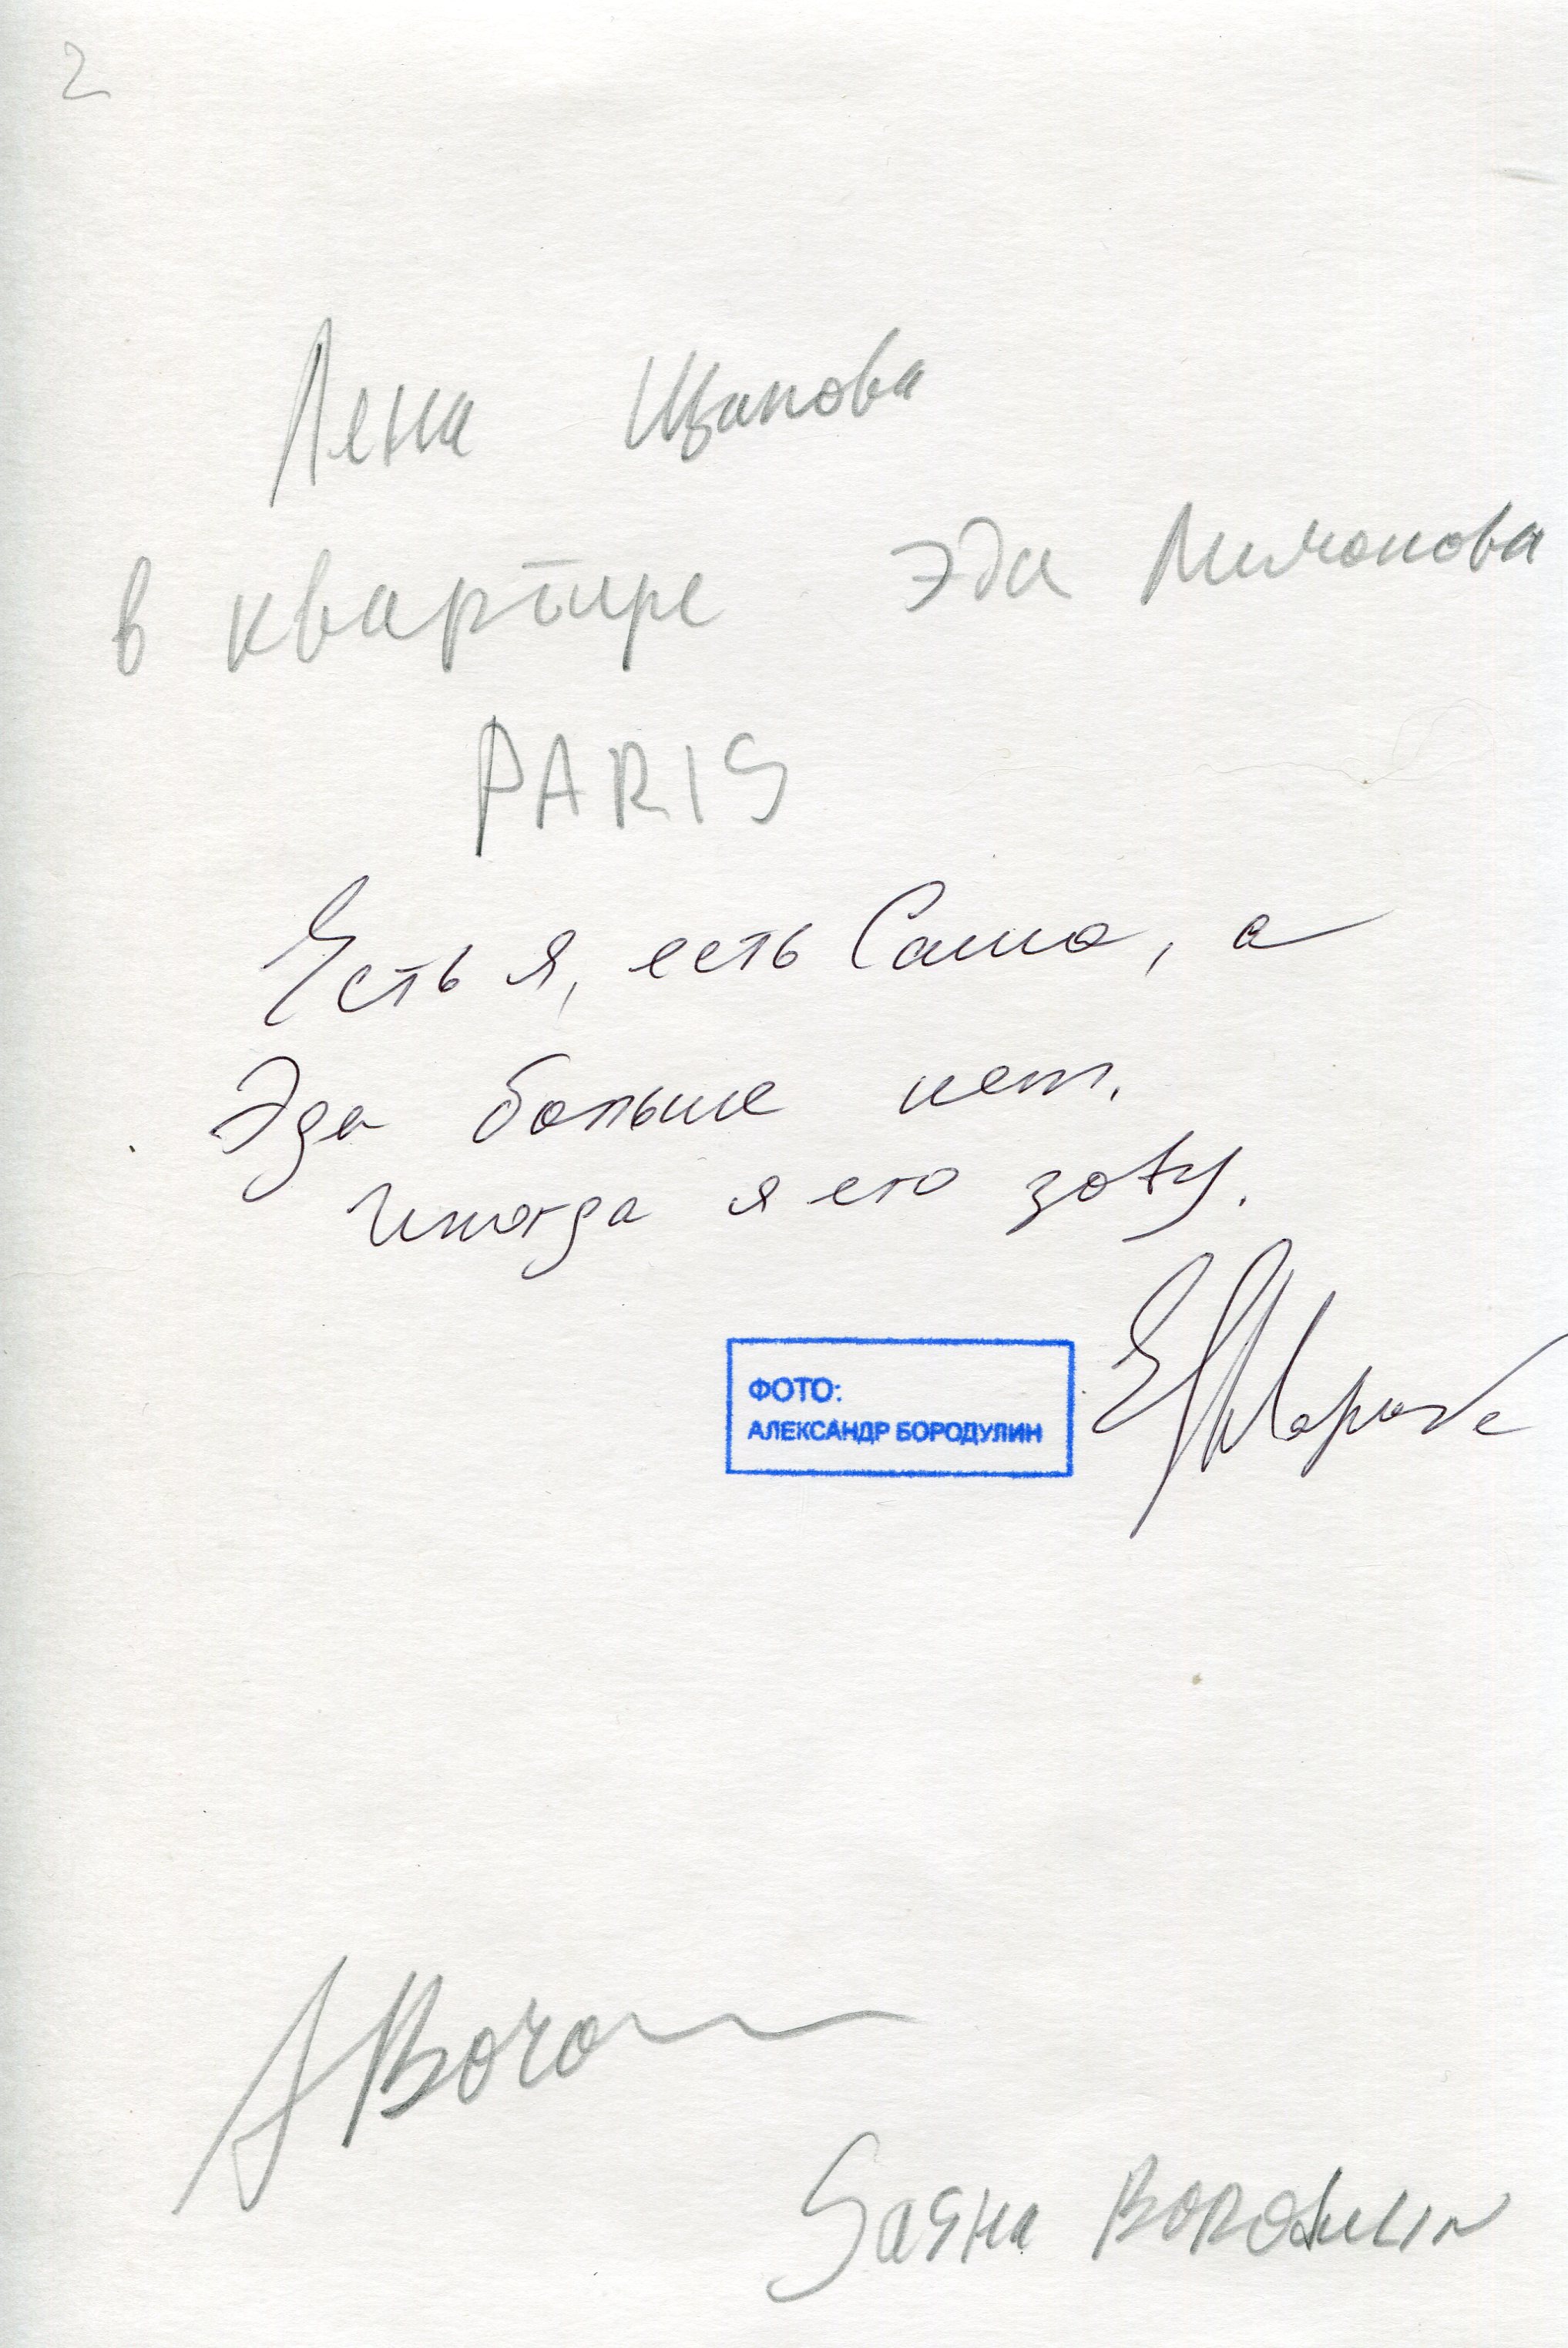 2
Лена Щапова
в квартире Эда Лимонова
PARIS
Есть я, есть Саша, а
Эда больше нет.
Иногда я его зову.
ФОТО:
АЛЕКСАНДР БОРОДУЛИН
Sasha BORODULIN